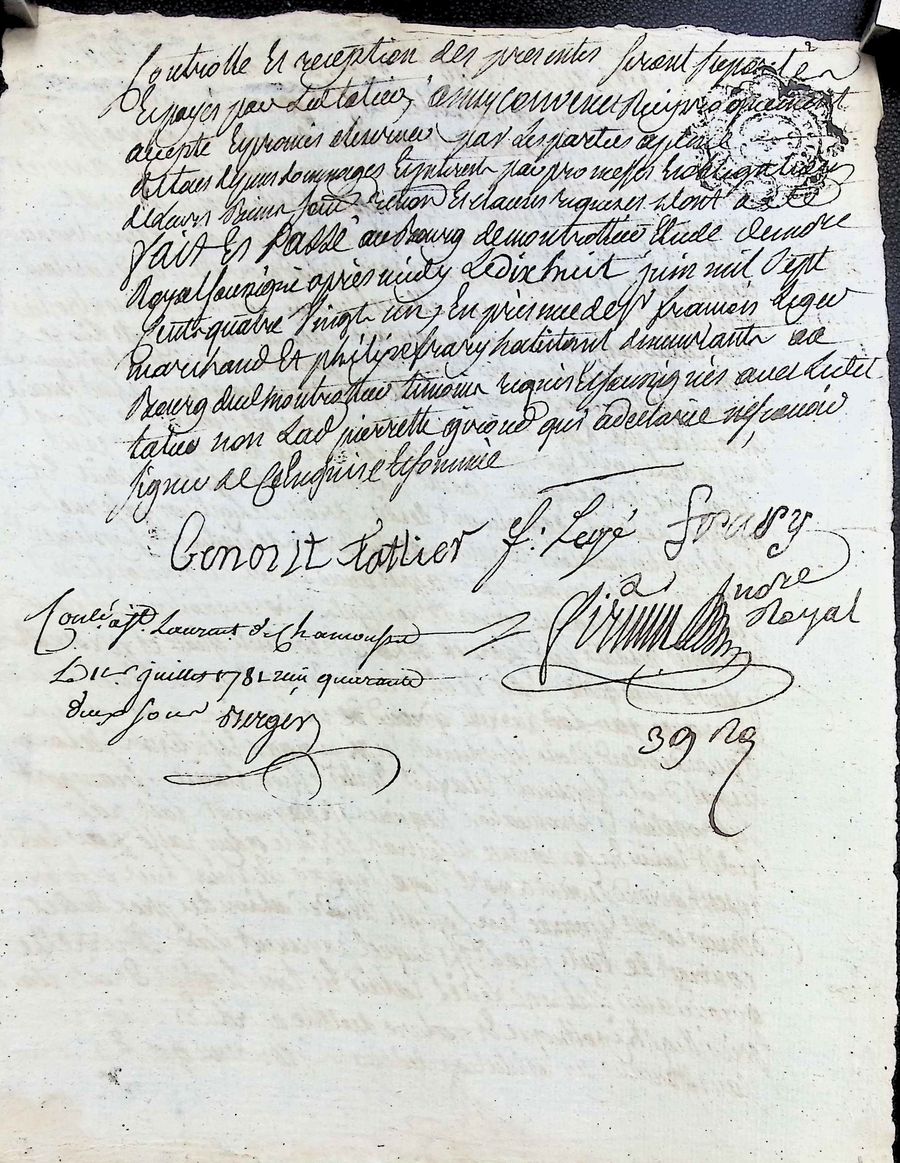 Controlle Et reception des presentes seront suporté
Et payés par Ledtatier, ainsy convenu et Reciproquement
accepté Et promis observer par des parties a peine
de tous depens dommages Et interest par promesses Et obligations
de leurs Biens soumission Et clauses requises dont acte
fait Et Passé au bourg de montrottier Etude de nore
Royal soussigné apres midy Le dix huit juin mil Sept
Cent quatre Vingt un, En presence de Sr francois Leger
marchand Et philipe frary habitant demeurants au
Bourg dud montrottier temoins requis Et soussignés avec Ledit
tatier non Lad pierrette giroud qui a declarée ne sçavoir
signer de Ce Enquise Et sommée
Benoist tattier f: Legé frary
Nore Royal
Conlé a St Laurent de Chamousset
Le 1er juillet 1781 reçu quarante
deux sous Berger
39